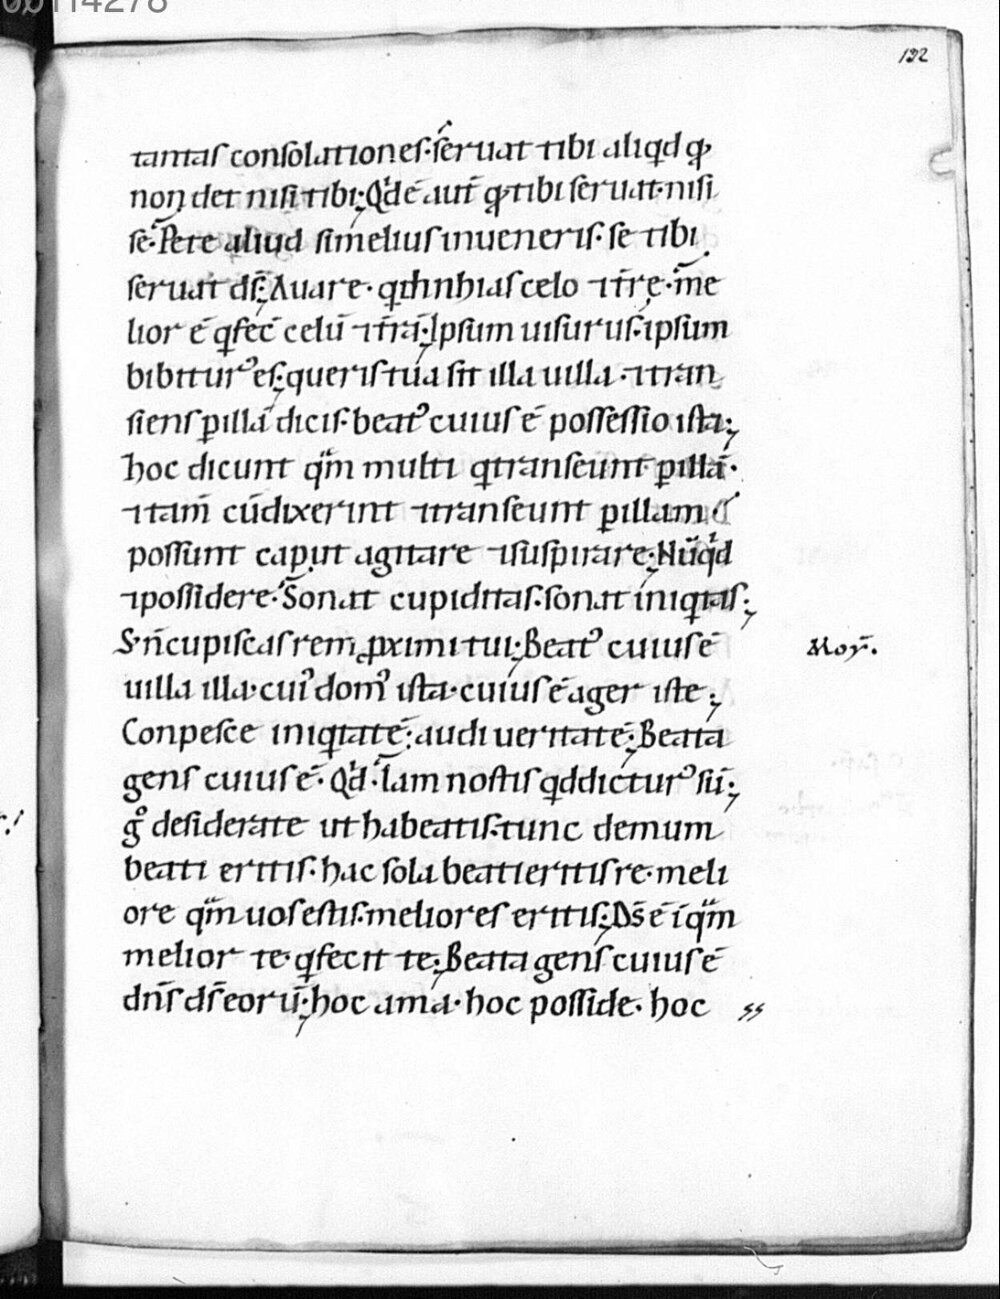 132
tantas consolationes· seruat tibi aliqd qđ
non det nisi tibi; Qd ē aut̄ qđ tibi seruat· nisi
se· Pete aliud si melius inueneris· se tibi
seruat d̄s; Auare· qd inhias celo ⁊ t̄re· me
lior ē q fec̄ celū ⁊ t̄rā; Ipsum uisurus· ipsum
bibiturꝰ es; queris tua sit illa uilla· ⁊ tran
siens p illā dicis· beatꝰ cuius ē possessio ista;
hoc dicunt qm̄ multi q transeunt p illā·
⁊ tam̄ cū dixerint ⁊ transeunt p illam·
possunt caput agitare ⁊ suspirare; Nūqd
⁊ possidere· Sonat cupiditas· sonat iniqitas;
S· n̄ cupiscas rem pximi tui; Beatꝰ cuius ē
uilla illa· cuiꝰ domꝰ ista· cuius ē ager iste;
Conpesce iniqtatē; audi ueritatē; Beata
gens cuius ē· Qd· Iam nostis qd dicturꝰ sū;
g° desiderate ut habeatis· tunc demum
beati eritis· hac sola beati eritis re· meli
ore qm̄ uos estis· meliores eritis; D̄s ē īqm̄
melior te· q fecit te; Beata gens cuius ē
dn̄s d̄s eorū; hoc ama· hoc posside· hoc
Moy̅.